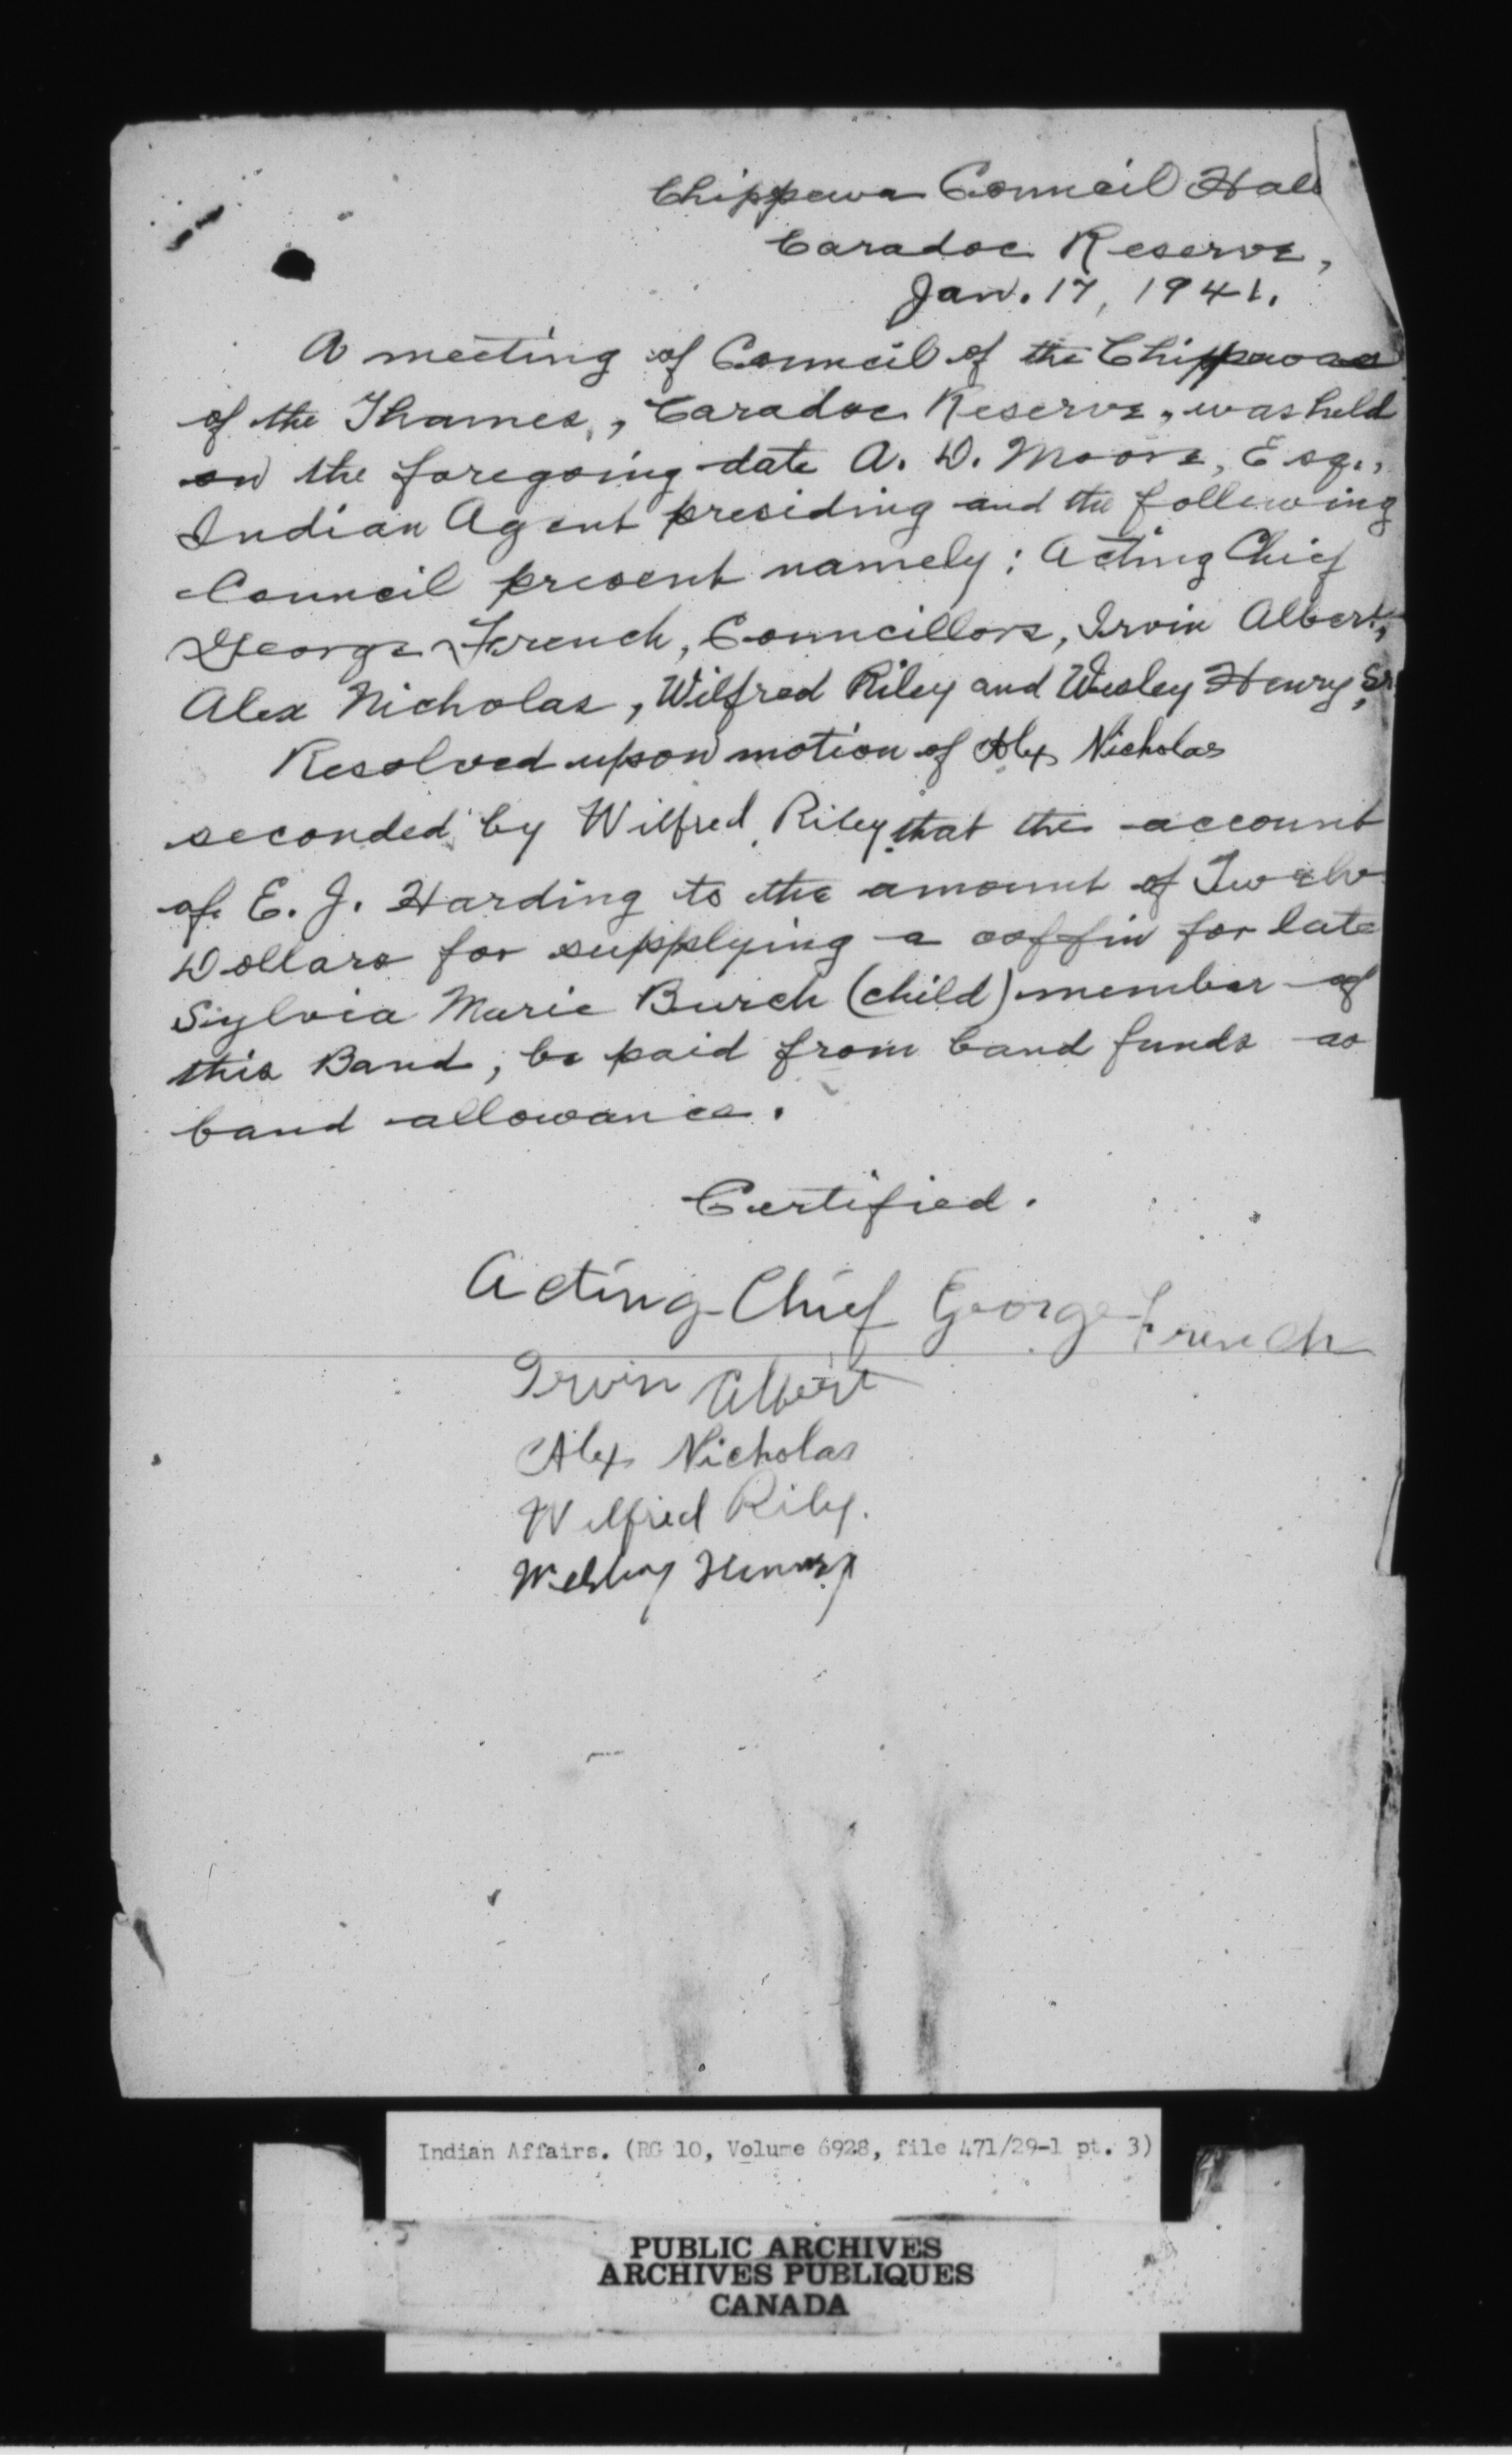 Chippewa Council Hall
Caradoc Reserve,
Jan. 17, 1941.
A meeting of Council of the Chippewas
of the Thames, Caradoc Reserve, was held
on the foregoing date A. D. Moore, Esq.,
Indian Agent presiding and the following
Council present namely: Acting Chief
George French, Councillors, Irvin Albert,
Alex Nicholas, Wilfred Riley and Wesley Henry, Sr
Resolved upon motion of Alex Nicholas
seconded by Wilfred Riley that the account
of E. J. Harding to the amount of Twelve
Dollars for supplying a coffin for late
Sylvia Marie Burch (child) member of
this Band, be paid from band funds as
band allowance.
Certified.
Acting Chief George French
Irvin Albert
Alex Nicholas
Wilfred Riley.
Wesley Henry
Indian Affairs. (RG 10, Volume 6928, file 471/29-1 pt. 3)
PUBLIC ARCHIVES
ARCHIVES PUBLIQUES
CANADA